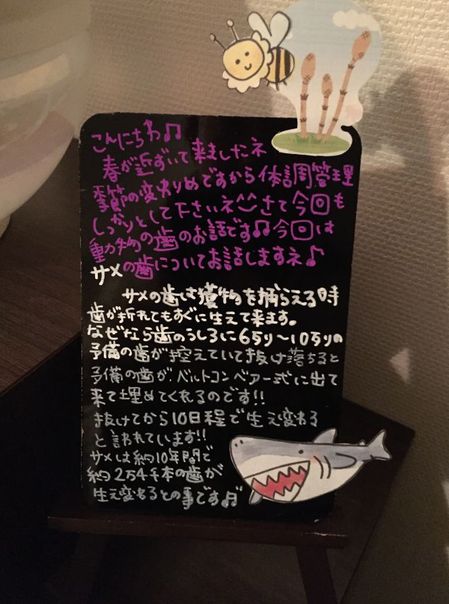 こんにちわ♫
春が近ずいて来ましたネ
季節の変わりめですから体調管理
しっかりとして下さいネ さて今回も
動物の歯のお話です♫今回は
サメの歯についてお話しますネ♪
サメの歯は獲物を捕らえる時
歯が折れてもすぐに生えて来ます。
なぜなら歯のうしろに6列〜10列の
予備の歯が控えていて抜け落ちると
予備の歯がベルトコンベアー式に出て
来て埋めてくれるのです!!
抜けてから10日程で生え変わる
と言われています!!
サメは約10年間で
約2万4千本の歯が
生え変わるとの事です♫